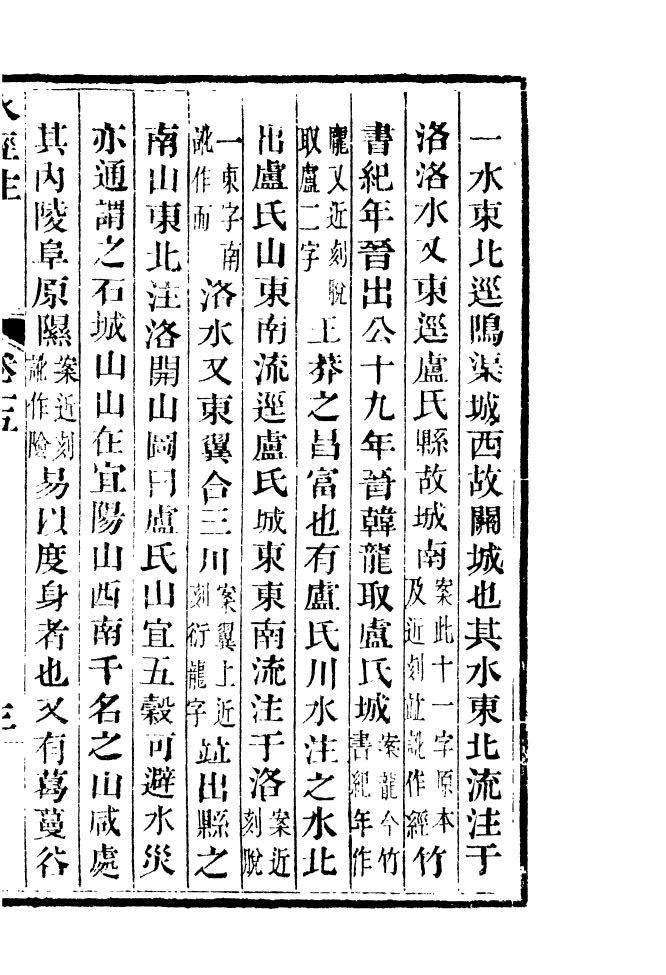 一水東北逕隖渠城西故關城也其水東北流注于
洛洛水又東逕盧氏縣故城南案此十一字原本及近刻竝訛作經竹
書紀年晉出公十九年晉韓龍取盧氏城案龍今竹書紀年作
龎又近刻脫取盧二字王莽之昌富也有盧氏川水注之水北
出盧氏山東南流逕盧氏城東東南流注于洛案近刻脫
一東字南訛作而洛水又東翼合三川案翼上近刻衍龍字竝出縣之
南山東北注洛開山圖曰盧氏山宜五穀可避水災
亦通謂之石城山山在宜陽山西南千名之山咸處
其內陵阜原隰案近刻訛作險易以度身者也又有葛蔓谷
水經注 卷十五 三